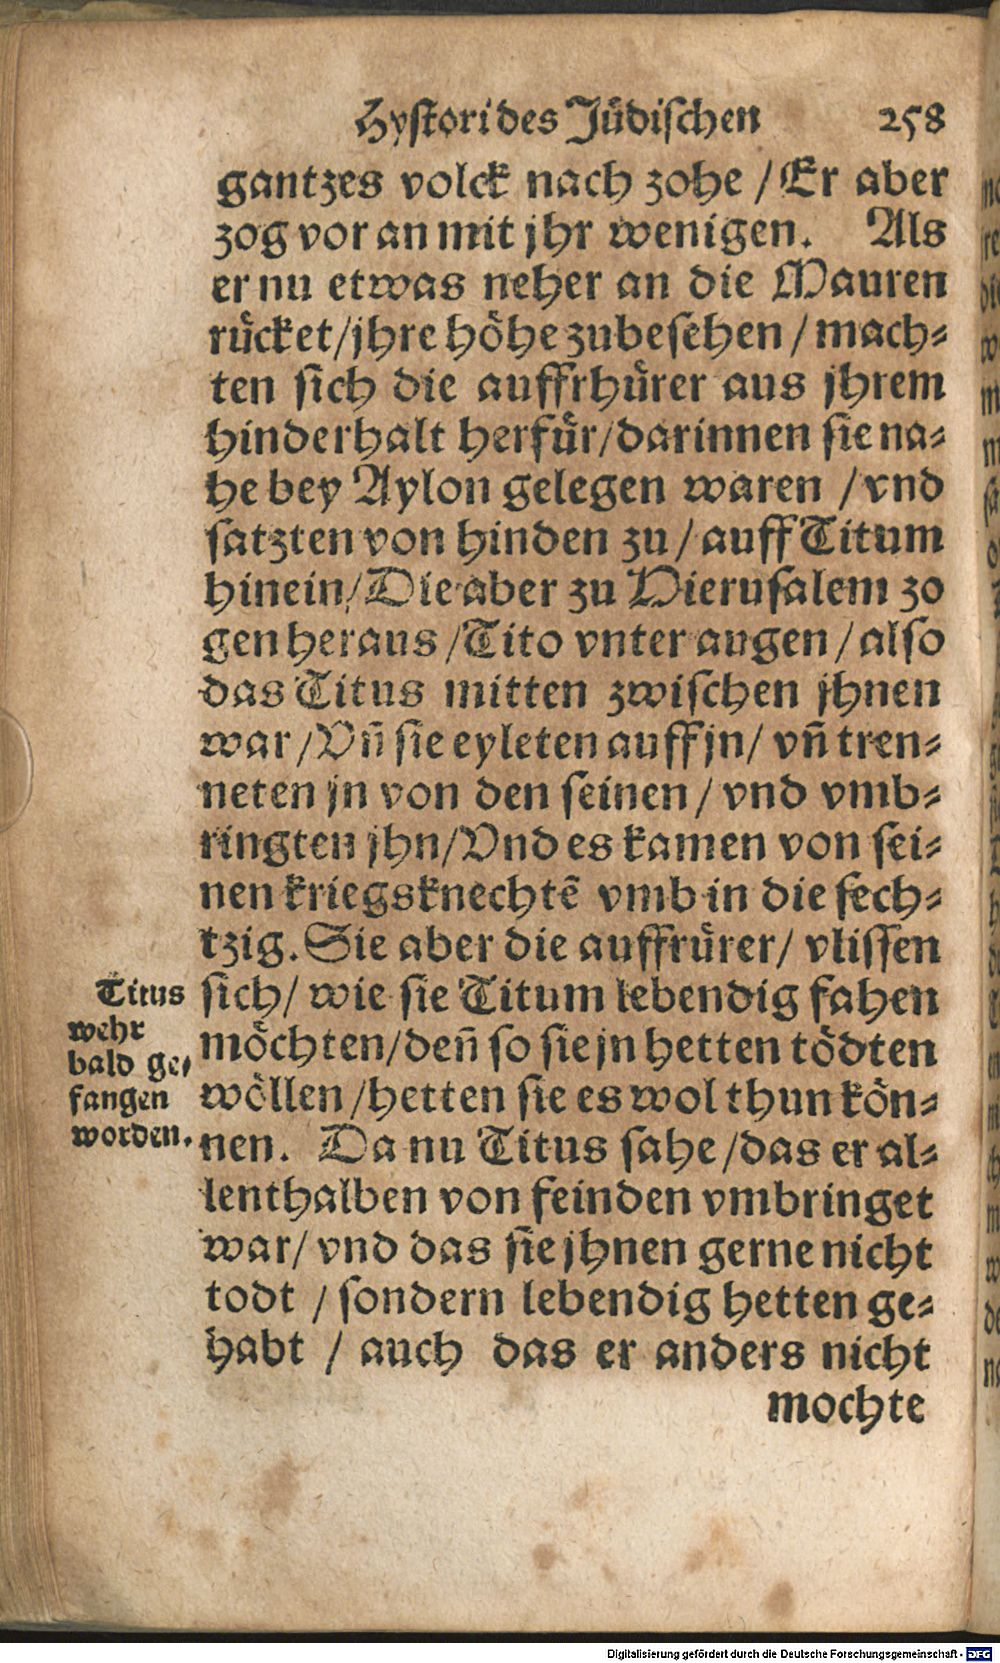 Hystori des Jüdischen 258
gantzes volck nach zohe / Er aber
zog vor an mit jhr wenigen. Als
er nu etwas neher an die Mauren
rücket/jhre höhe zubesehen / mach⸗
ten sich die auffrhürer aus jhrem
hinderhalt herfür/darinnen sie na⸗
he bey Aylon gelegen waren / vnd
satzten von hinden zu / auff Titum
hinein/Die aber zu Hierusalem zo
gen heraus /Tito vnter augen / also
das Titus mitten zwischen jhnen
war /Vñ sie eyleten auff jn/ vñ tren⸗
neten jn von den seinen / vnd vmb⸗
ringten jhn/Vnd es kamen von sei⸗
nen kriegsknechtẽ vmb in die sech⸗
tzig. Sie aber die auffrürer/ vlissen
sich/ wie sie Titum lebendig fahen
möchten/deñ so sie jn hetten tödten
wöllen /hetten sie es wol thun kön⸗
nen. Da nu Titus sahe /das er al⸗
lenthalben von feinden vmbringet
war/ vnd das sie jhnen gerne nicht
todt / sondern lebendig hetten ge⸗
habt / auch das er anders nicht
mochte
Titus
wehr
bald ge⸗
fangen
worden.
Digitalisierung gefördert durch die Deutsche Forschungsgemeinschaft - DFG